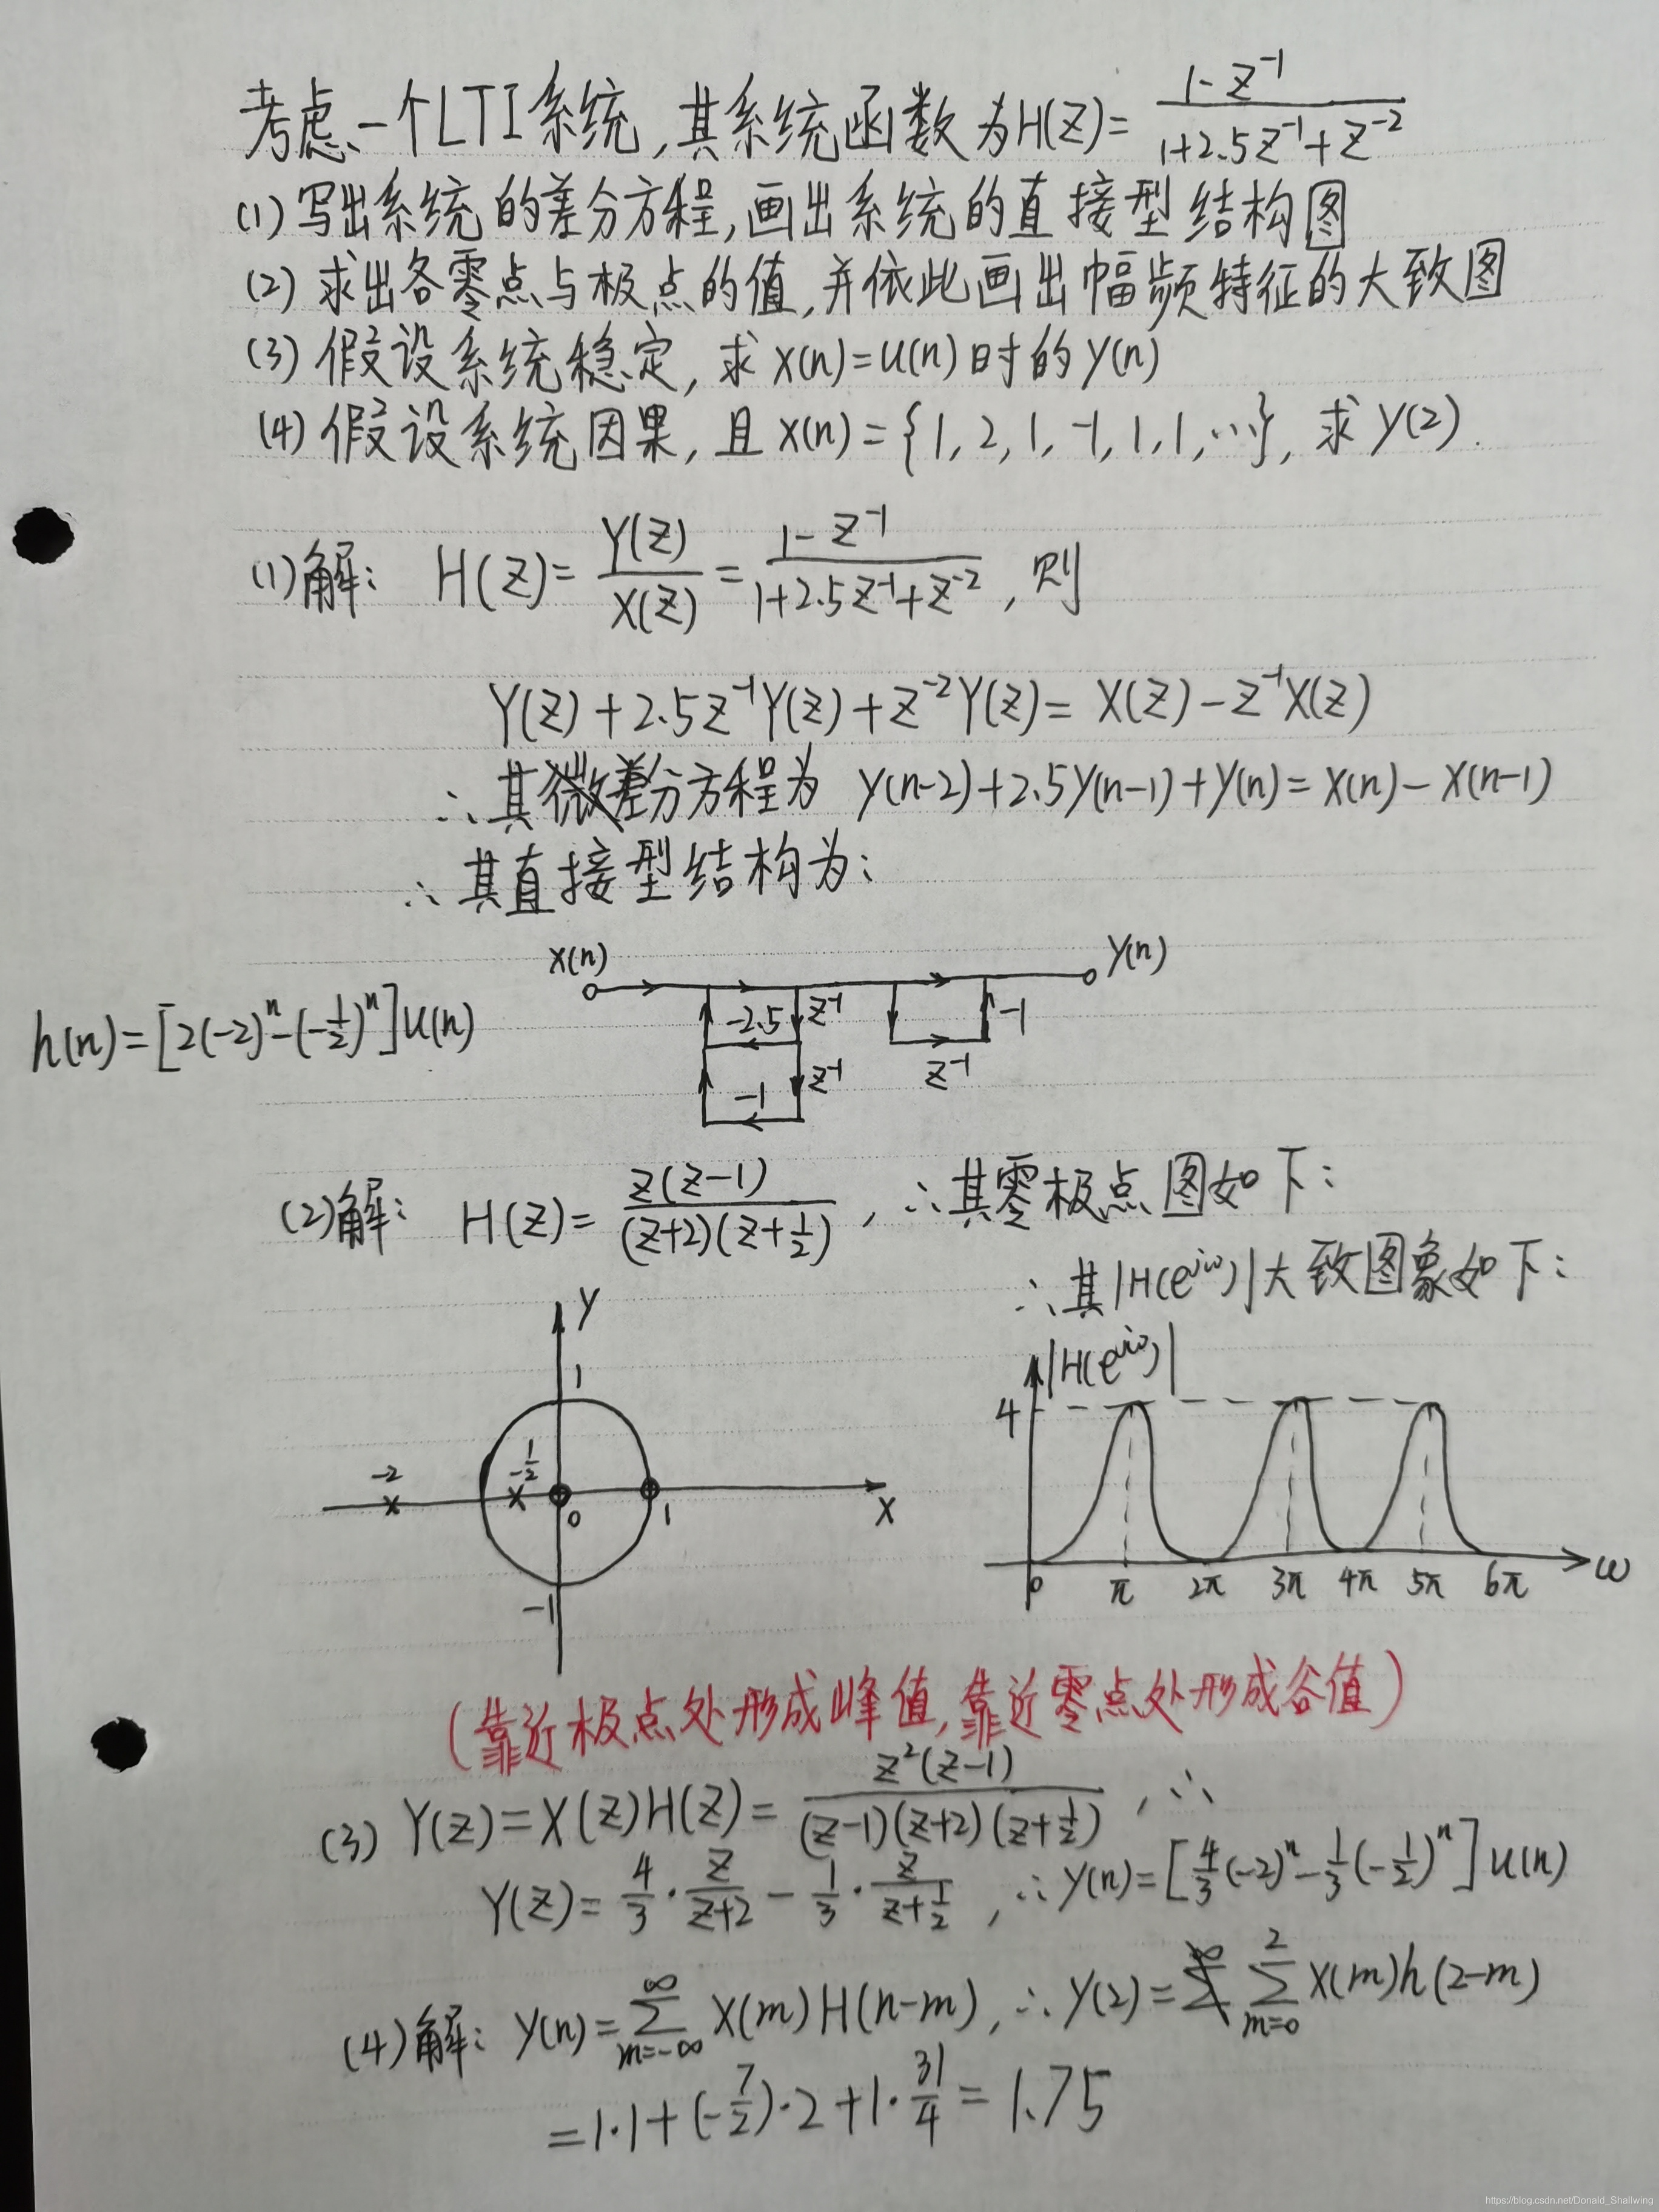 考虑一个LTI系统,其系统函数为H(Z)= \frac{1-Z^{-1}}{1+2.5Z^{-1}+Z^{-2}}
(1)写出系统的差分方程,画出系统的直接型结构图
(2) 求出各零点与极点的值,并依此画出幅频特征的大致图
(3) 假设系统稳定, 求 x(n)=u(n)时的y(n)
(4) 假设系统因果, 且 x(n)={1, 2, 1, -1, 1, 1, …}, 求 y(2).
(1)解: H(Z)= \frac{Y(Z)}{X(Z)} = \frac{1-Z^{-1}}{1+2.5Z^{-1}+Z^{-2}} , 则
Y(Z)+2.5Z^{-1}Y(Z)+Z^{-2}Y(Z)= X(Z)-Z^{-1}X(Z)
∴其差分方程为 y(n-2)+2.5y(n-1)+y(n)=x(n)-x(n-1)
∴其直接型结构为:
x(n) y(n)
-2.5 Z^{-1} -1
Z^{-1}
-1 Z^{-1}
h(n)=[2(-2)^n-(-\frac{1}{2})^n]u(n)
(2)解: H(Z)= \frac{Z(Z-1)}{(Z+2)(Z+\frac{1}{2})} , ∴其零极点图如下:
∴其|H(e^{jω})|大致图象如下:
Y
1
-2 -\frac{1}{2} 0 1 X
-1
|H(e^{jω})|
4
0 π 2π 3π 4π 5π 6π ω
(靠近极点处形成峰值,靠近零点处形成谷值)
(3) Y(Z)=X(Z)H(Z)= \frac{Z^2(Z-1)}{(Z-1)(Z+2)(Z+\frac{1}{2})} , ∴
Y(Z)= \frac{4}{3}·\frac{Z}{Z+2} - \frac{1}{3}·\frac{Z}{Z+\frac{1}{2}} , ∴y(n)=[\frac{4}{3}(-2)^n-\frac{1}{3}(-\frac{1}{2})^n]u(n)
(4)解: y(n)=\sum_{m=-∞}^{∞} x(m)H(n-m), ∴y(2)= \sum_{m=0}^{2} x(m)h(2-m)
=1·1+(-\frac{7}{2})·2+1·\frac{31}{4}=1.75
https://blog.csdn.net/Donald_Shallwing